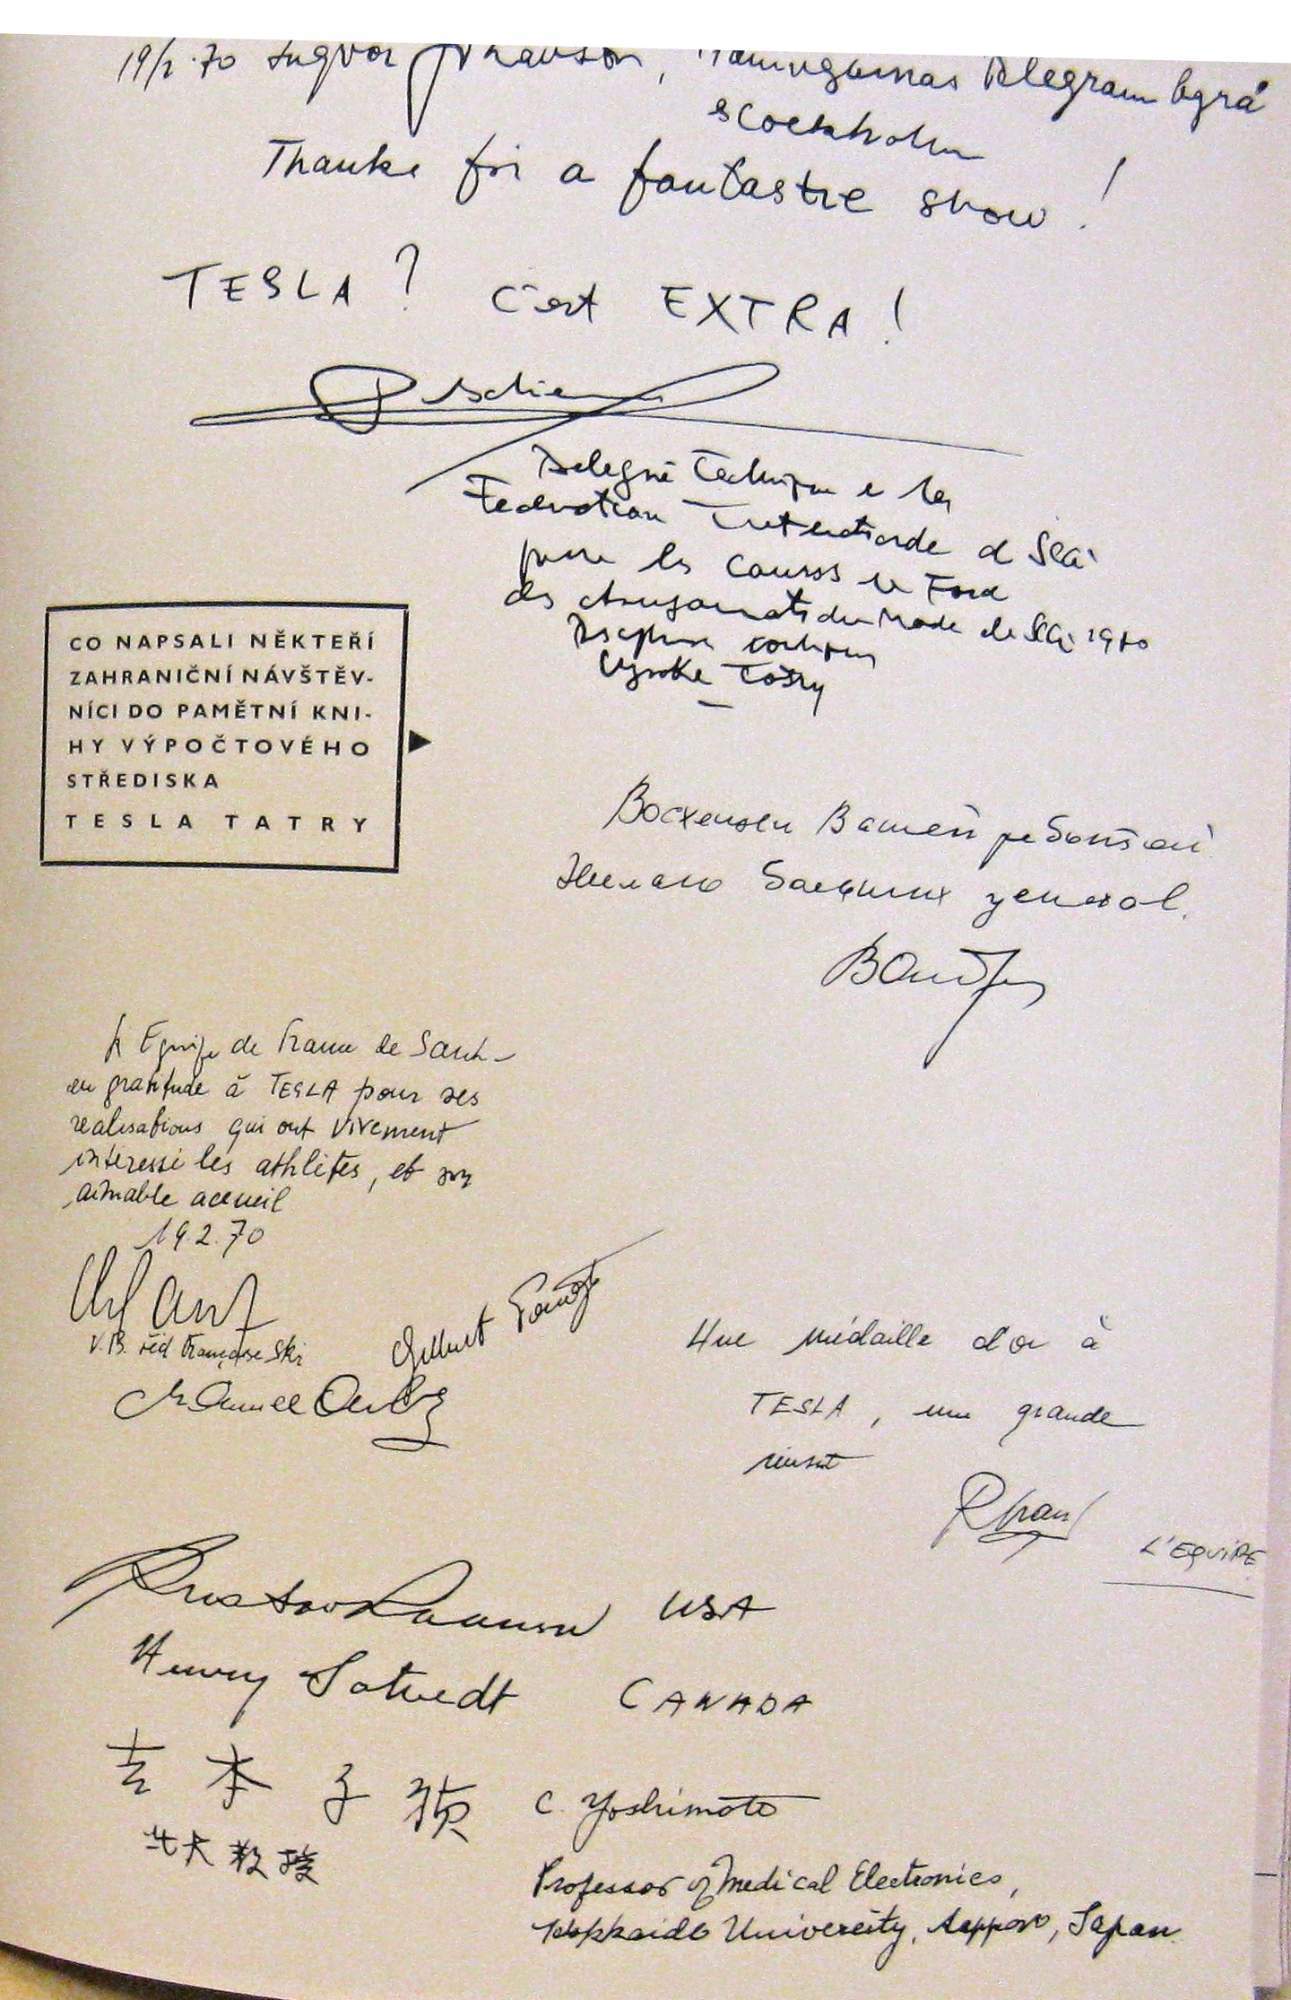 19/2.70 Ingvor Johansson, Tidningarnas Telegrambyrå
Stockholm
Thanks for a fantastic show!
TESLA? C'est EXTRA!
Délégué technique de la
Fédération Internationale de Ski
pour les courses de Fond
des championnats du Monde de Ski 1970
Vysoké Tatry
CO NAPSALI NĚKTEŘÍ
ZAHRANIČNÍ NÁVŠTĚV-
NÍCI DO PAMĚTNÍ KNI-
HY VÝPOČTOVÉHO
STŘEDISKA
TESLA TATRY
Восхищен Вашей работой
Желаю больших успехов.
L'Equipe de France de Saut
en gratitude à TESLA pour ses
réalisations qui ont vivement
intéressé les athlètes, et son
aimable accueil
19.2.70
V.P. Féd Française Ski
Gilbert
Une médaille d'or à
TESLA, une grande
réussite
L'EQUIPE
USA
Henry Sotvedt CANADA
吉本千禎 C. Yoshimoto
北大教授
Professor of Medical Electronics,
Hokkaido University, Sapporo, Japan